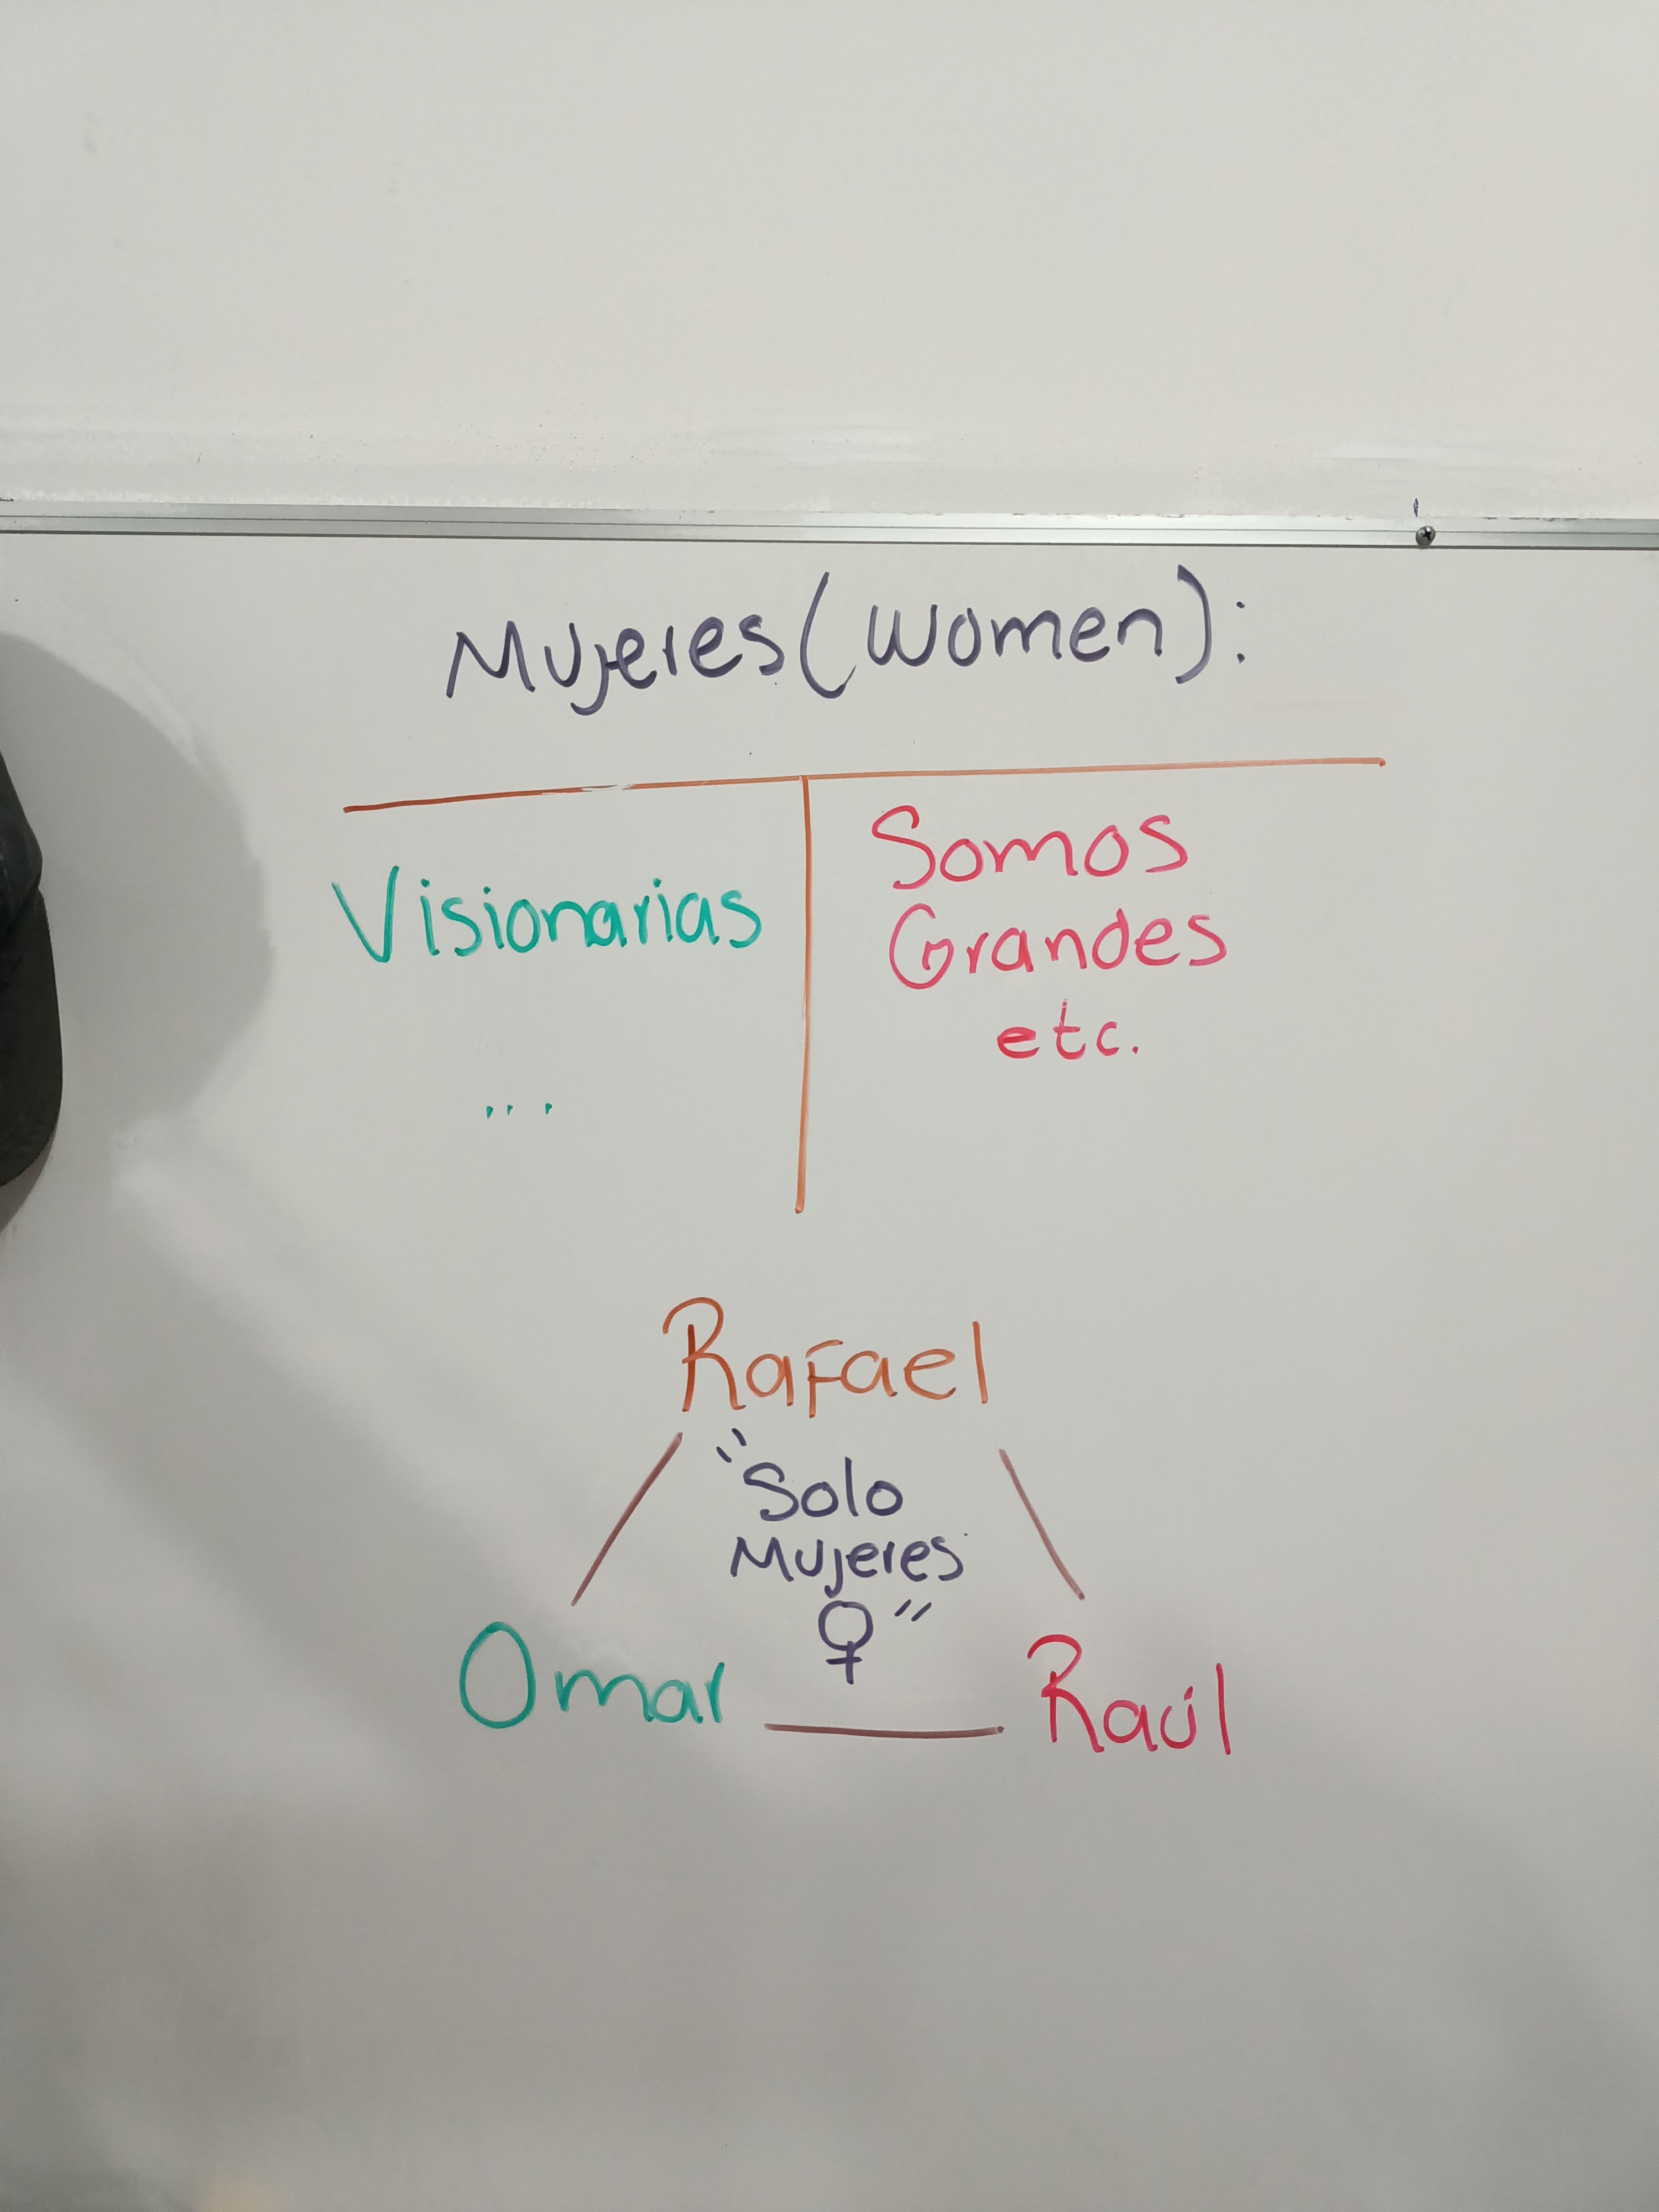 Mujeres (women):
Visionarias
...
Somos
Grandes
etc.
Rafael
"Solo
Mujeres
♀"
Omar
Raúl